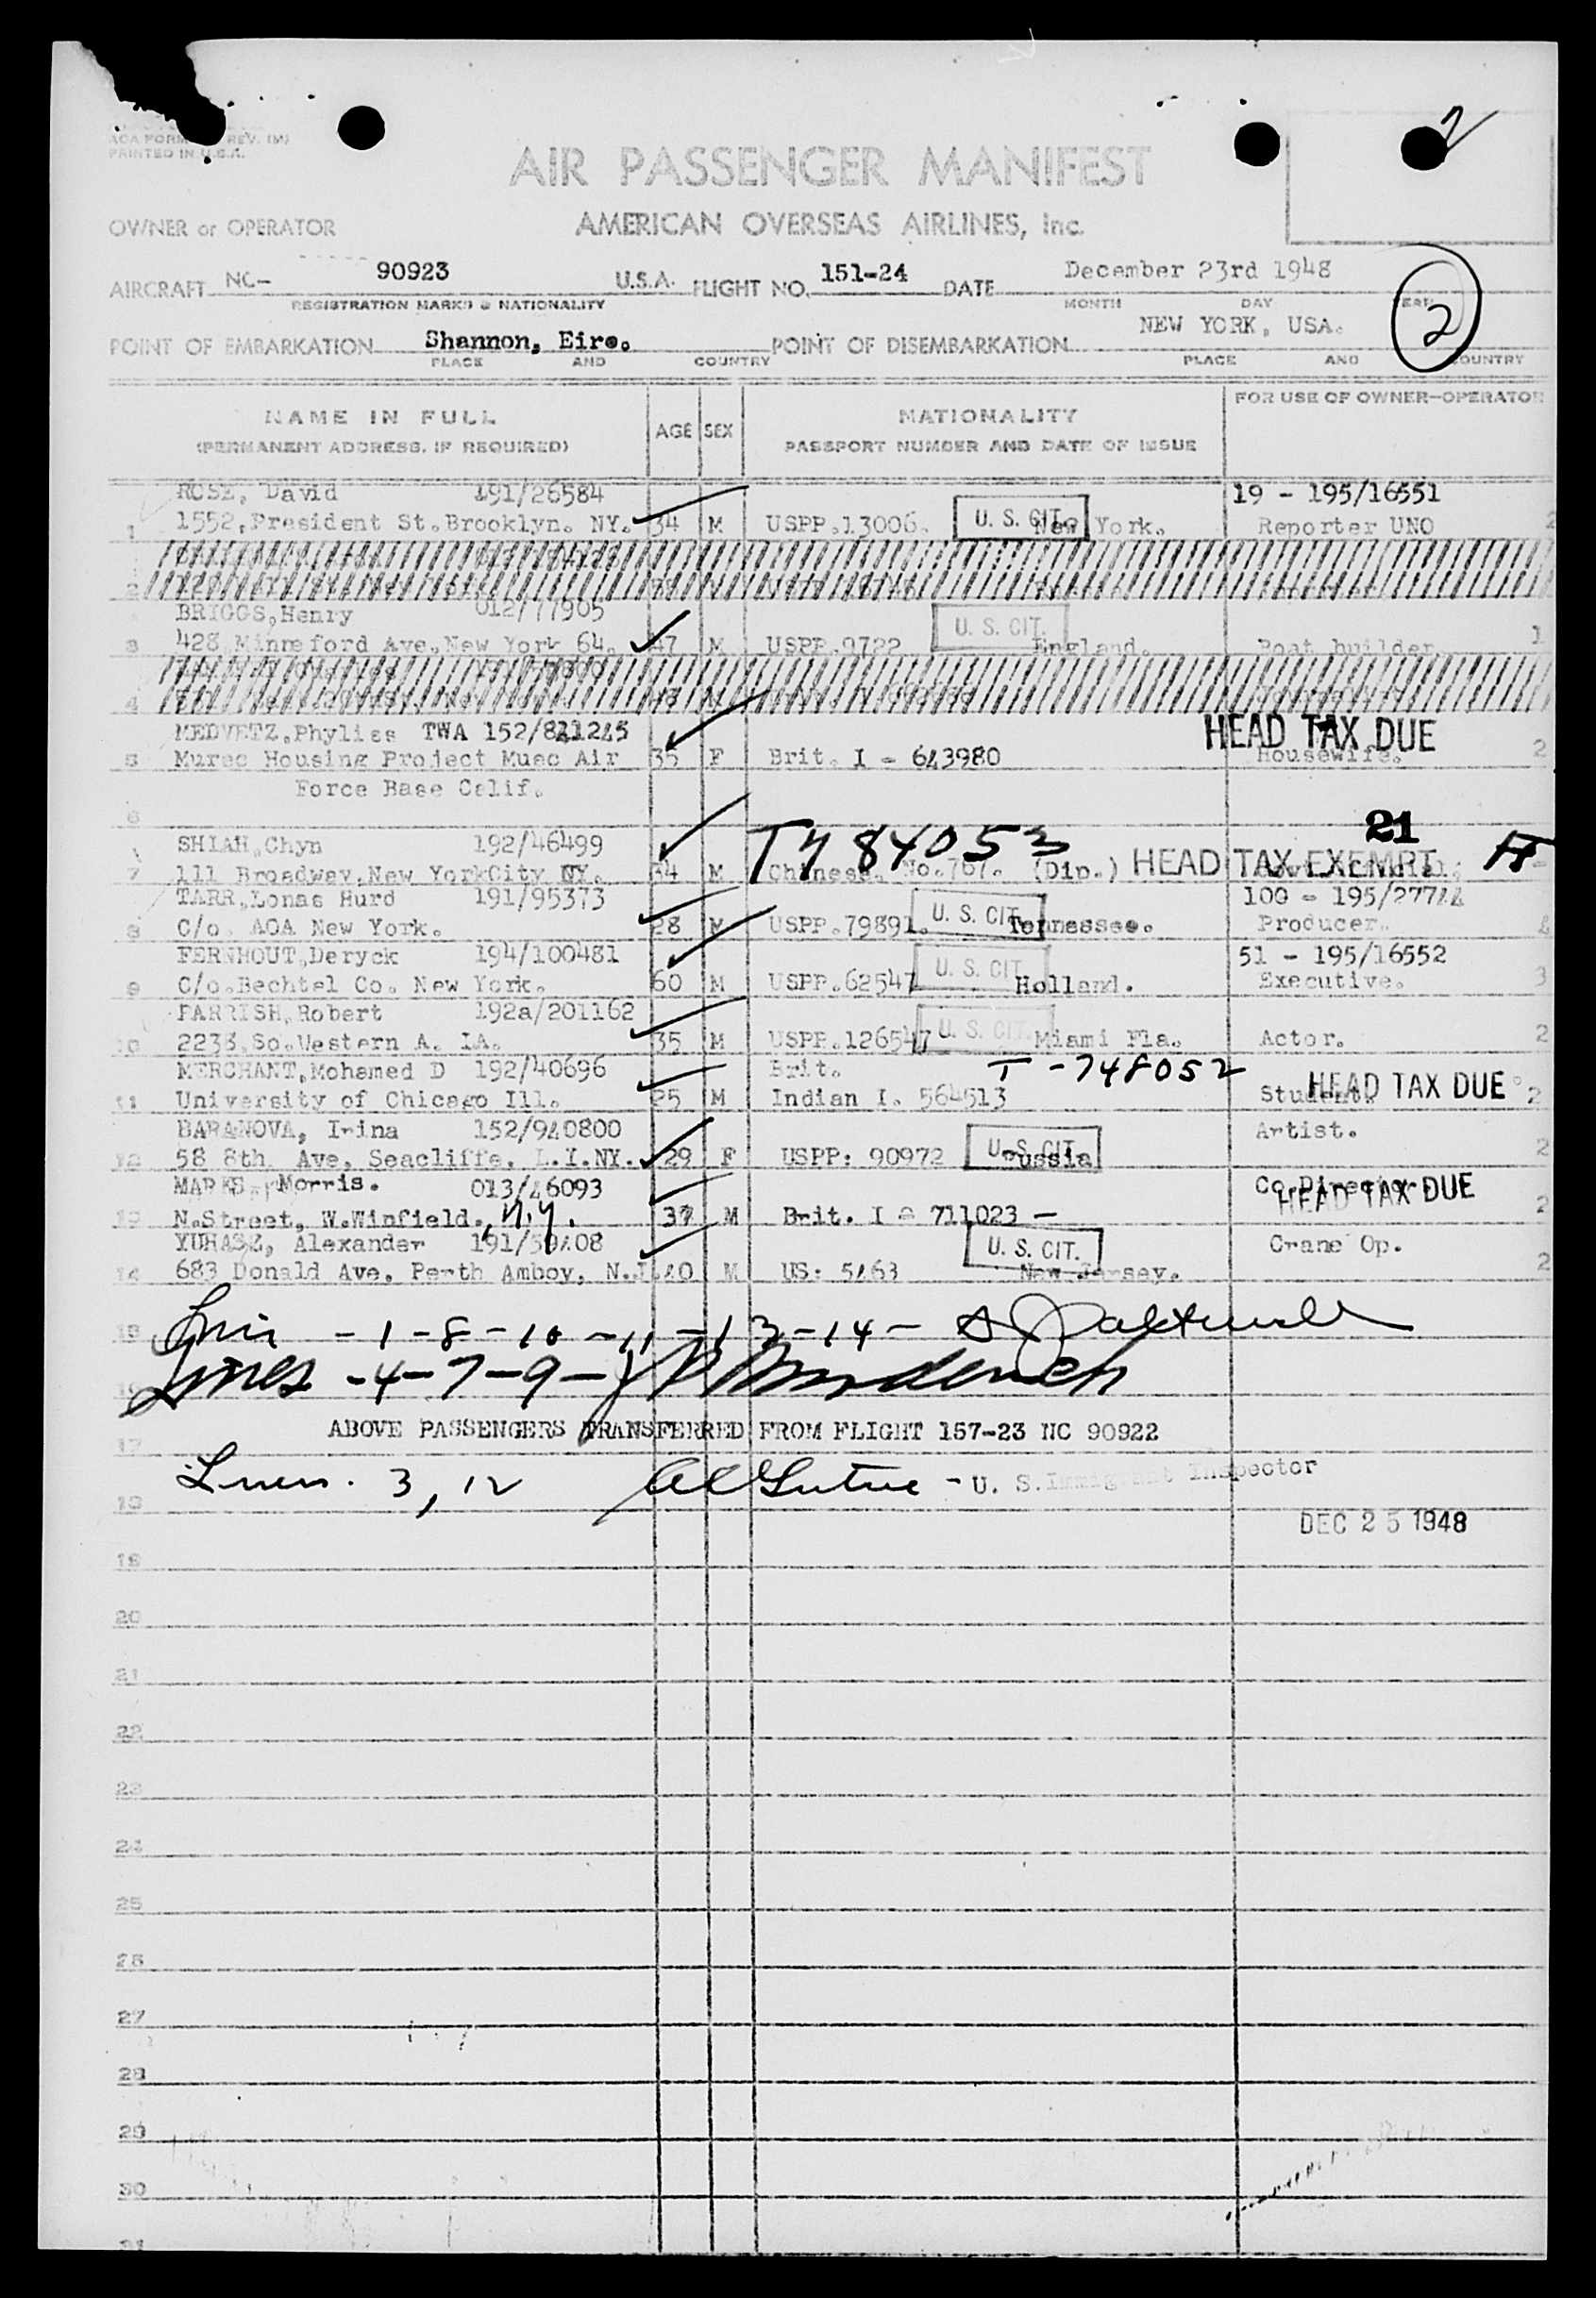 2
PRINTED IN U.S.A.
AIR PASSENGER MANIFEST
OWNER or OPERATOR AMERICAN OVERSEAS AIRLINES, Inc.
AIRCRAFT NC- 90923 U.S.A. FLIGHT NO. 151-24 DATE December 23rd 1948
REGISTRATION MARKS & NATIONALITY MONTH DAY YEAR
2
POINT OF EMBARKATION Shannon, Eire. POINT OF DISEMBARKATION NEW YORK, USA.
PLACE AND COUNTRY PLACE AND COUNTRY
NAME IN FULL AGE SEX NATIONALITY FOR USE OF OWNER-OPERATOR
(PERMANENT ADDRESS, IF REQUIRED) PASSPORT NUMBER AND DATE OF ISSUE
ROSE, David 191/26584 19 - 195/16551
1 1552,President St.Brooklyn. NY. 34 M USPP.13006. U. S. CIT. New York. Reporter UNO 2
2
BRIGGS,Henry 012/77905
3 428 Minneford Ave.New York 64. 47 M USPP.9722 U. S. CIT. England. Boat builder 1
4
MEDVETZ,Phyliss TWA 152/ HEAD TAX DUE
5 Muroc Housing Project Muac Air 35 F Brit. I - 643980 Housewife. 2
Force Base Calif.
6
21
SHIAH,Chyn 192/46499 T784053
7 111 Broadway,New YorkCity NY. 34 M Chinese. No.767. (Dip.) HEAD TAX EXEMPT
TARR,Lonas Hurd 191/95373 100 - 195/27744
8 C/o. AOA New York. 28 M USPP.79891. U. S. CIT. Tennessee. Producer. 4
FERNHOUT,Deryck 194/100481 51 - 195/16552
9 C/o.Bechtel Co. New York. 60 M USPP.62547 U. S. CIT. Holland. Executive. 3
PARRISH,Robert 192a/201162
10 2238,So.Western A. IA. 35 M USPP.126547 U. S. CIT. Miami Fla. Actor. 2
MERCHANT,Mohamed D 192/40696 Brit. T-748052
11 University of Chicago Ill. 25 M Indian I. 564513 Student. HEAD TAX DUE 2
BARANOVA, Irina 152/940800 Artist.
12 58 8th Ave, Seacliffe, L.I.NY. 29 F USPP: 90972 U. S. CIT. Russia 2
MARKS, Morris. 013/46093 Co.Director. HEAD TAX DUE
13 N.Street, W.Winfield., N.Y. 37 M Brit. I - 711023 - 2
YUHASZ, Alexander 191/59408 Crane Op.
14 683 Donald Ave, Perth Amboy, N.J. 40 M US: 5463 U. S. CIT. New Jersey. 2
15 - 1 - 8 - 10 - 11 - 13 - 14 -
16 - 4 - 7 - 9 -
ABOVE PASSENGERS TRANSFERRED FROM FLIGHT 157-23 NC 90922
17
18 3, 12 - U. S. Immigrant Inspector
DEC 25 1948
19
20
21
22
23
24
25
26
27
28
29
30
31